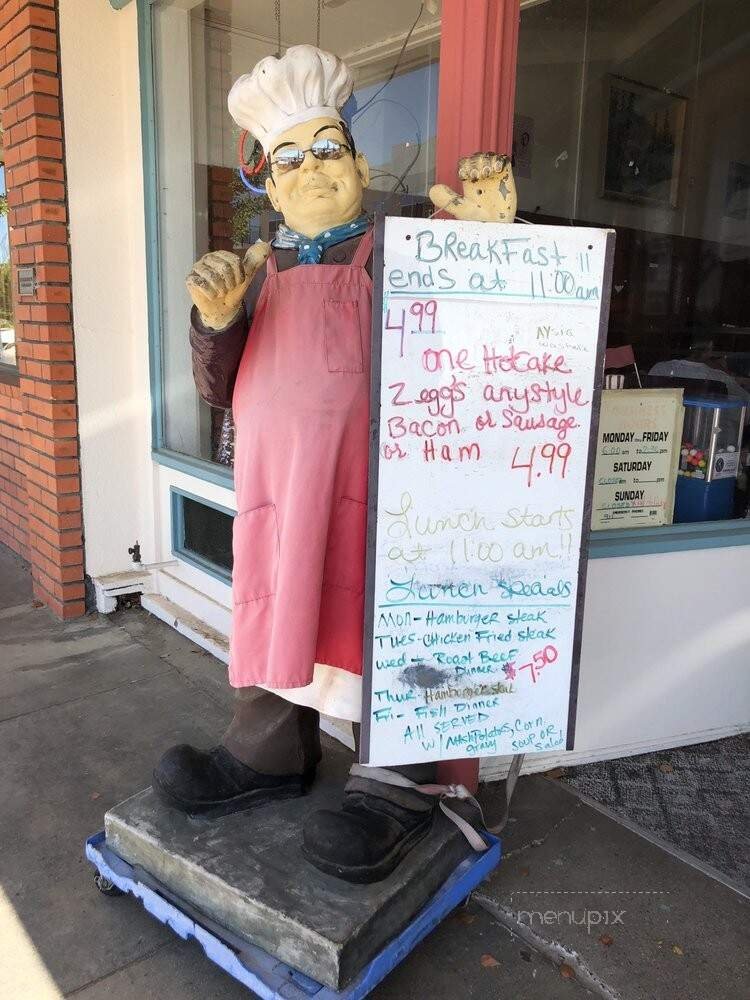 BREAKFAST !!
ends at 11:00 am
4.99
one HotCake
2 eggs any style
Bacon or Sausage
or Ham 4.99
Lunch starts
at 11:00 am!!
Lunch Specials
Mon - Hamburger steak
Tues - Chicken Fried steak
Wed - Roast Beef
Dinner $7.50
Thur - Hamburger steak
Fri - Fish Dinner
All SERVED
w/ MAshPotatos, Corn,
gravy SOUP OR
Salad
MONDAY FRIDAY
6:00 am to 2:30 pm
SATURDAY
to pm
SUNDAY
menupix